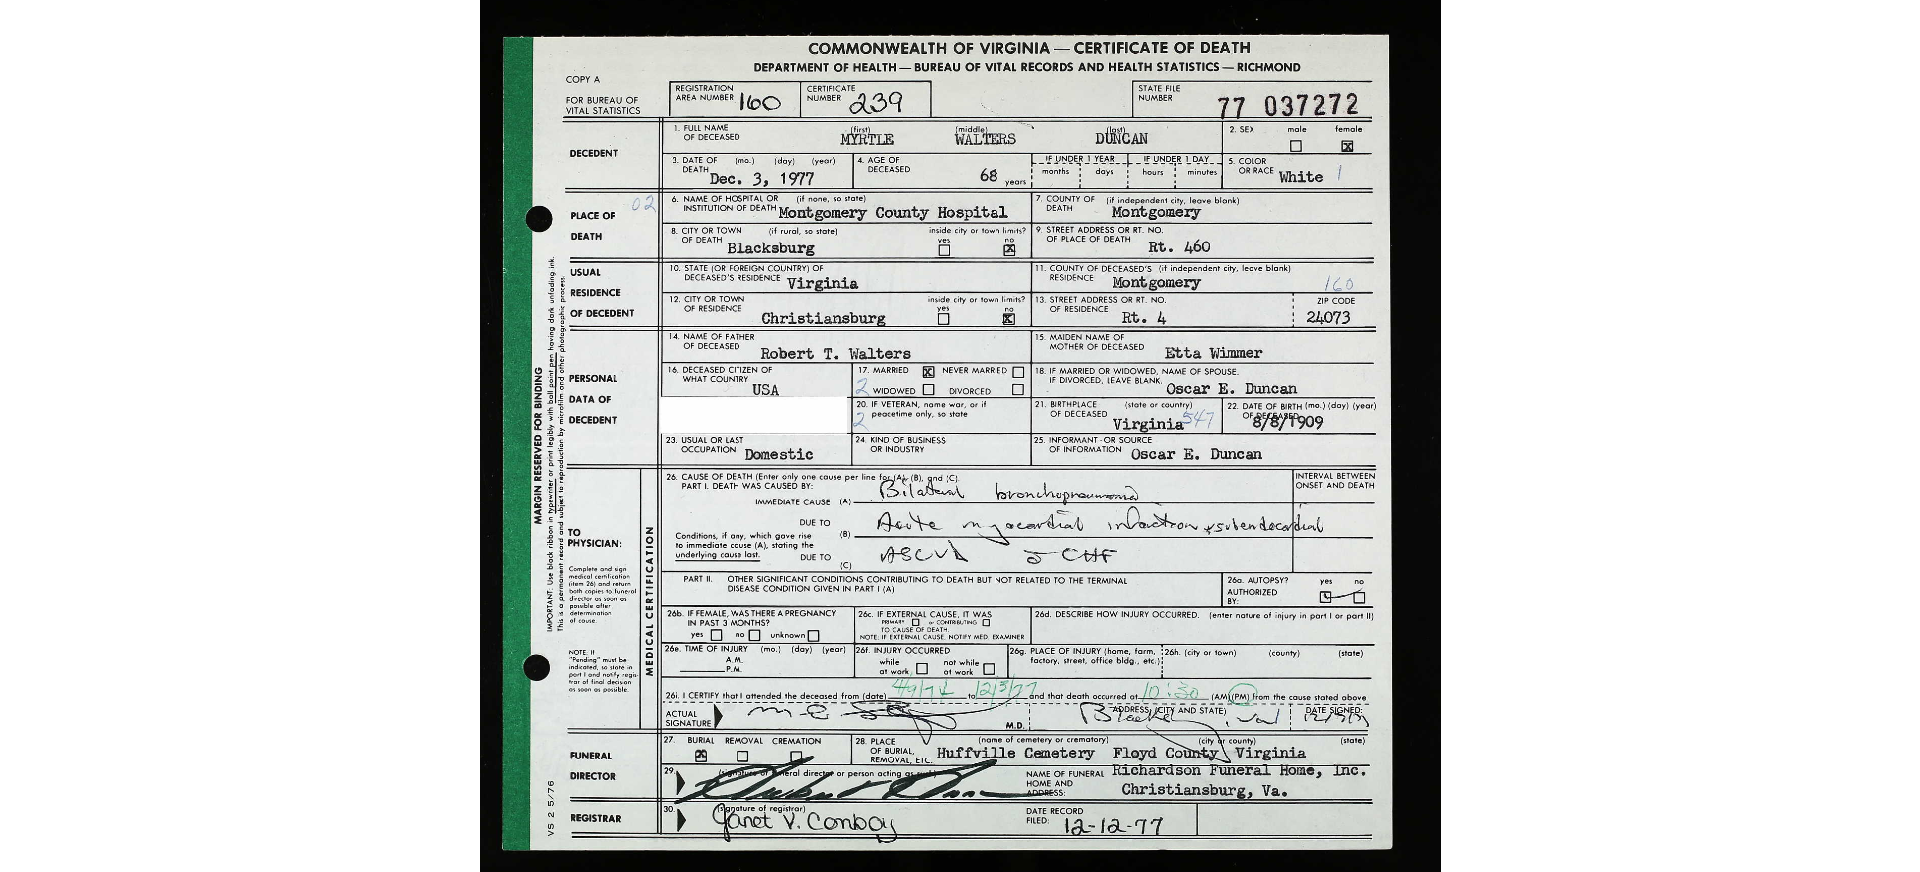 COMMONWEALTH OF VIRGINIA — CERTIFICATE OF DEATH
DEPARTMENT OF HEALTH — BUREAU OF VITAL RECORDS AND HEALTH STATISTICS — RICHMOND
COPY A
FOR BUREAU OF
VITAL STATISTICS
REGISTRATION
AREA NUMBER 160
CERTIFICATE
NUMBER 239
STATE FILE
NUMBER 77 037272
DECEDENT
1. FULL NAME OF DECEASED (first) MYRTLE (middle) WALTERS (last) DUNCAN
2. SEX male female X
3. DATE OF DEATH (mo.) (day) (year) Dec. 3, 1977
4. AGE OF DECEASED 68 years
IF UNDER 1 YEAR months days
IF UNDER 1 DAY hours minutes
5. COLOR OR RACE White 1
PLACE OF
DEATH
02
6. NAME OF HOSPITAL OR INSTITUTION OF DEATH (if none, so state) Montgomery County Hospital
7. COUNTY OF DEATH (if independent city, leave blank) Montgomery
8. CITY OR TOWN OF DEATH (if rural, so state) Blacksburg
inside city or town limits? yes no X
9. STREET ADDRESS OR RT. NO. OF PLACE OF DEATH Rt. 460
USUAL
RESIDENCE
OF DECEDENT
10. STATE (OR FOREIGN COUNTRY) OF DECEASED'S RESIDENCE Virginia
11. COUNTY OF DECEASED'S RESIDENCE (if independent city, leave blank) Montgomery
160
12. CITY OR TOWN OF RESIDENCE Christiansburg
inside city or town limits? yes no X
13. STREET ADDRESS OR RT. NO. OF RESIDENCE Rt. 4
ZIP CODE 24073
PERSONAL
DATA OF
DECEDENT
14. NAME OF FATHER OF DECEASED Robert T. Walters
15. MAIDEN NAME OF MOTHER OF DECEASED Etta Wimmer
16. DECEASED CITIZEN OF WHAT COUNTRY USA
17. MARRIED X NEVER MARRIED
2 WIDOWED DIVORCED
18. IF MARRIED OR WIDOWED, NAME OF SPOUSE. IF DIVORCED, LEAVE BLANK. Oscar E. Duncan
20. IF VETERAN, name war, or if peacetime only, so state 2
21. BIRTHPLACE OF DECEASED (state or country) Virginia 547
22. DATE OF BIRTH (mo.) (day) (year) OF DECEASED 8/8/1909
23. USUAL OR LAST OCCUPATION Domestic
24. KIND OF BUSINESS OR INDUSTRY
25. INFORMANT - OR SOURCE OF INFORMATION Oscar E. Duncan
MARGIN RESERVED FOR BINDING
IMPORTANT: Use black ribbon in typewriter or print legibly with ball point pen having dark unfading ink.
This is a permanent record and subject to reproduction by microfilm and other photographic process.
TO
PHYSICIAN:
Complete and sign
medical certification
(item 26) and return
both copies to funeral
director as soon as
possible after
determination
of cause.
NOTE: If
"Pending" must be
indicated, so state in
part I and notify regis-
trar of final decision
as soon as possible.
MEDICAL CERTIFICATION
26. CAUSE OF DEATH (Enter only one cause per line for (A), (B), and (C).
PART I. DEATH WAS CAUSED BY:
INTERVAL BETWEEN
ONSET AND DEATH
IMMEDIATE CAUSE (A) Bilateral bronchopneumonia
DUE TO (B) Acute myocardial infarction, subendocardial
Conditions, if any, which gave rise
to immediate cause (A), stating the
underlying cause last.
DUE TO (C) ASCVD c̄ CHF
PART II. OTHER SIGNIFICANT CONDITIONS CONTRIBUTING TO DEATH BUT NOT RELATED TO THE TERMINAL
DISEASE CONDITION GIVEN IN PART I (A)
26a. AUTOPSY? yes no
AUTHORIZED
BY:
26b. IF FEMALE, WAS THERE A PREGNANCY
IN PAST 3 MONTHS?
yes no unknown
26c. IF EXTERNAL CAUSE, IT WAS
PRIMARY or CONTRIBUTING
TO CAUSE OF DEATH.
NOTE: IF EXTERNAL CAUSE, NOTIFY MED. EXAMINER
26d. DESCRIBE HOW INJURY OCCURRED. (enter nature of injury in part I or part II)
26e. TIME OF INJURY (mo.) (day) (year)
A.M.
P.M.
26f. INJURY OCCURRED
while at work not while at work
26g. PLACE OF INJURY (home, farm,
factory, street, office bldg., etc.)
26h. (city or town) (county) (state)
26i. I CERTIFY that I attended the deceased from (date) to 12/3/77 and that death occurred at 10:30 (AM) (PM) from the cause stated above
ACTUAL
SIGNATURE
M.D.
ADDRESS (CITY AND STATE)
DATE SIGNED:
FUNERAL
DIRECTOR
27. BURIAL X REMOVAL CREMATION
28. PLACE OF BURIAL, REMOVAL, ETC. (name of cemetery or crematory) (city or county) (state)
Huffville Cemetery Floyd County, Virginia
29. (signature of funeral director or person acting as such)
NAME OF FUNERAL HOME AND ADDRESS: Richardson Funeral Home, Inc.
Christiansburg, Va.
REGISTRAR
30. (signature of registrar)
Janet V. Conboy
DATE RECORD
FILED: 12-12-77
VS 2 5/76